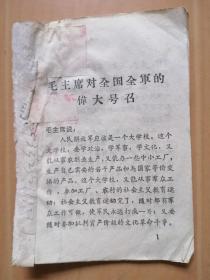 毛主席对全国全軍的
偉大号召
毛主席说：
人民解放军应该是一个大学校。这个
大学校，要学政治，学军事，学文化，又
能从事农副业生产，又能办一些中小工厂，
生产自己需要的若干产品和与国家等价交
换的产品。这个大学校，又能从事群众工
作，参加工厂、农村的社会主义教育运
动；社会主义教育运动完了，随时都有群
众工作可做，使军民永远打成一片；又要
随时参加批判资产阶级的文化革命斗争。
1